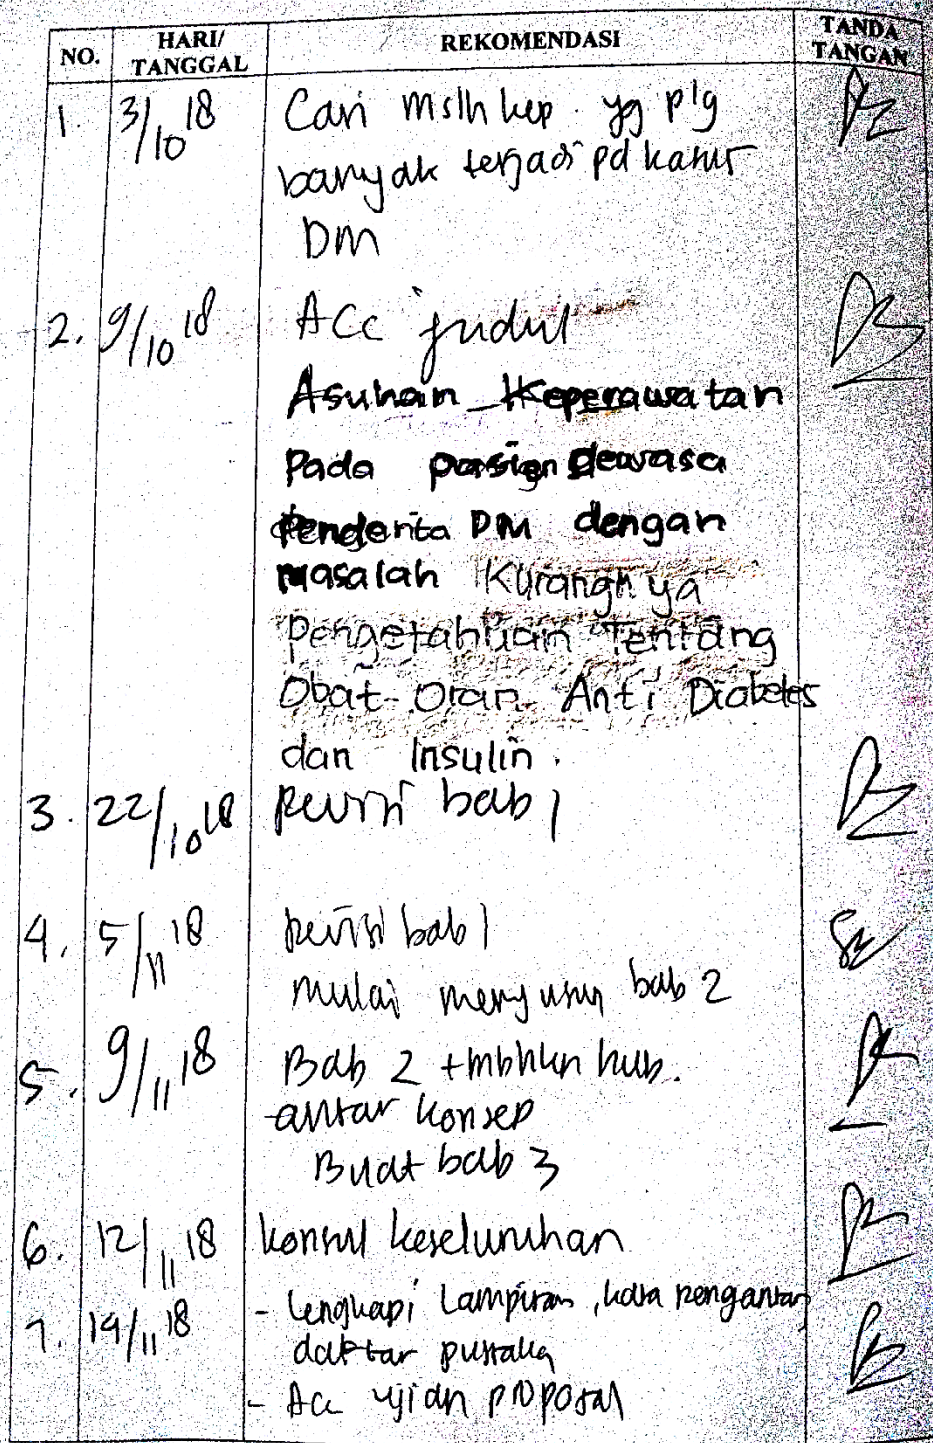 NO. HARI/ TANGGAL REKOMENDASI TANDA TANGAN
1. 3/10 18 Cari mslh kep. yg plg
banyak terjadi pd kasus
DM
2. 9/10 18 Acc judul
Asuhan Keperawatan
Pada pasien dewasa
Penderita DM dengan
masalah Kurangnya
Pengetahuan Tentang
Obat Oran Anti Diabetes
dan Insulin.
3. 22/10 18 Revisi bab 1
4. 5/11 18 Revisi bab 1
mulai menyusun bab 2
5. 9/11 18 Bab 2 + mbhkn hub.
antar konsep
Buat bab 3
6. 12/11 18 konsul keseluruhan
7. 19/11 18 - Lengkapi Lampiran, kata pengantar,
daftar pustaka
- Acc ujian proposal